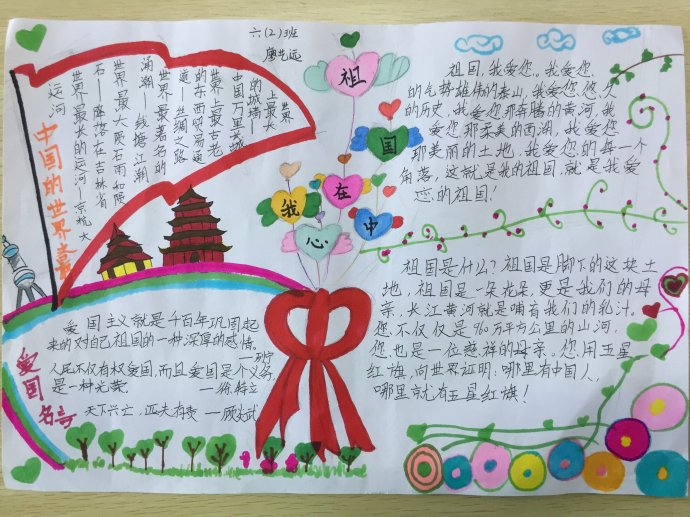 六(2)班
廖艺远
中国的世界之最
世界
上最大
的城墙——
中国万里长城
世界上最古老
的东西贸易通
道——丝绸之路
世界最著名的
涌潮——钱塘江潮
世界最大陨石雨如陨
石——降落在吉林省
世界最长的运河——京杭大
运河
祖国在我心中
祖国,我爱您。我爱您
的气势雄伟的泰山,我爱您悠久
的历史,我爱您那奔腾的黄河,我
爱您那柔美的西湖,我爱您
那美丽的土地,我爱您的每一个
角落,这就是我的祖国,就是我爱
恋的祖国!
祖国是什么?祖国是脚下的这块土
地,祖国是一朵花朵,更是我们的母
亲,长江黄河就是哺育我们的乳汁。
您不仅仅是960万平方公里的山河,
您也是一位慈祥的母亲。您用五星
红旗,向世界证明:哪里有中国人,
哪里就有五星红旗!
爱国名言
爱国主义就是千百年巩固起
来的对自己祖国的一种深厚的感情。
——列宁
人民不仅有权爱国,而且爱国是个义务,
是一种光荣。——徐特立
天下兴亡,匹夫有责——顾炎武